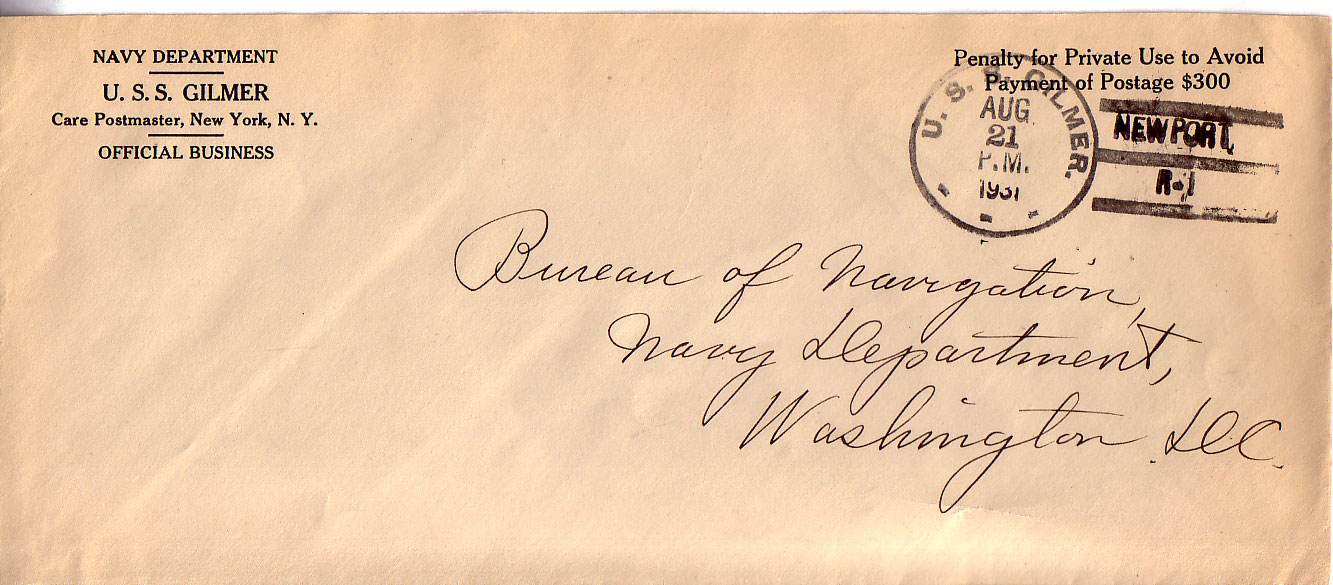 NAVY DEPARTMENT
U. S. S. GILMER
Care Postmaster, New York, N. Y.
OFFICIAL BUSINESS
Penalty for Private Use to Avoid
Payment of Postage $300
U. S. S. GILMER.
AUG
21
P.M.
1931
NEWPORT,
R-I
Bureau of Navigation,
Navy Department,
Washington D.C.